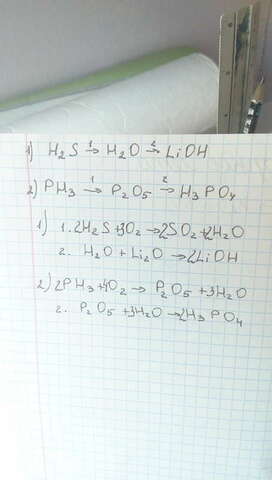 1) H₂S →¹ H₂O →² LiOH
2) PH₃ →¹ P₂O₅ →² H₃PO₄
1) 1. 2H₂S+3O₂→2SO₂+2H₂O
2. H₂O + Li₂O → 2LiOH
2) 2PH₃+4O₂→ P₂O₅ +3H₂O
2. P₂O₅ +3H₂O→2H₃PO₄